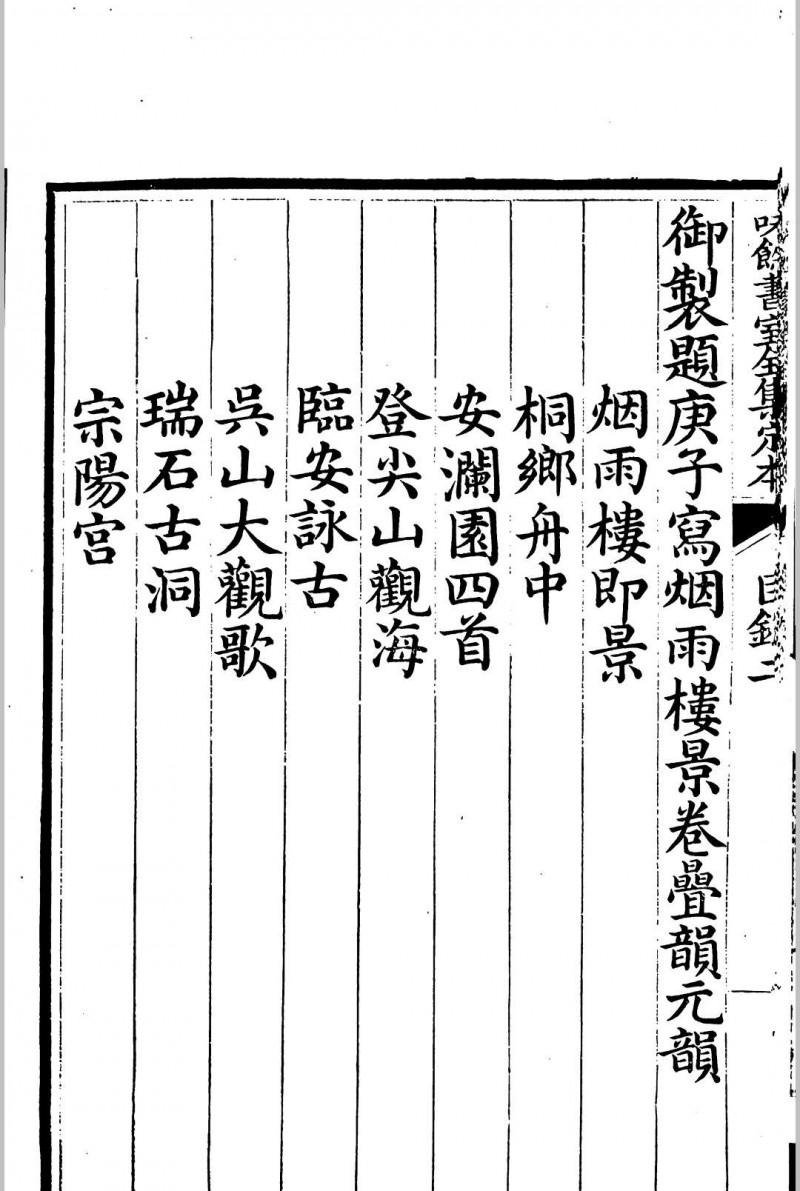 味餘書室全集定本 目錄二
御製題庚子寫烟雨樓景卷疊韻元韻
烟雨樓即景
桐鄉舟中
安瀾園四首
登尖山觀海
臨安詠古
吳山大觀歌
瑞石古洞
宗陽宮